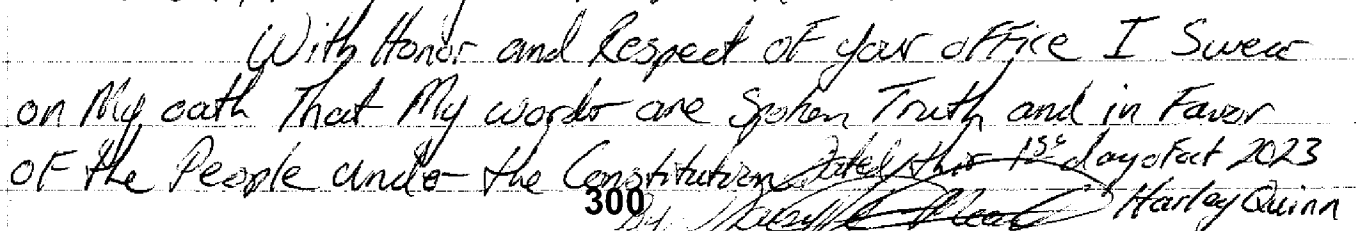 With Honor and Respect of your office I Swear
on My oath That My words are Spoken Truth and in Favor
of the People under the Constitution Dated this 1st day of oct 2023
300
By Harley Quinn